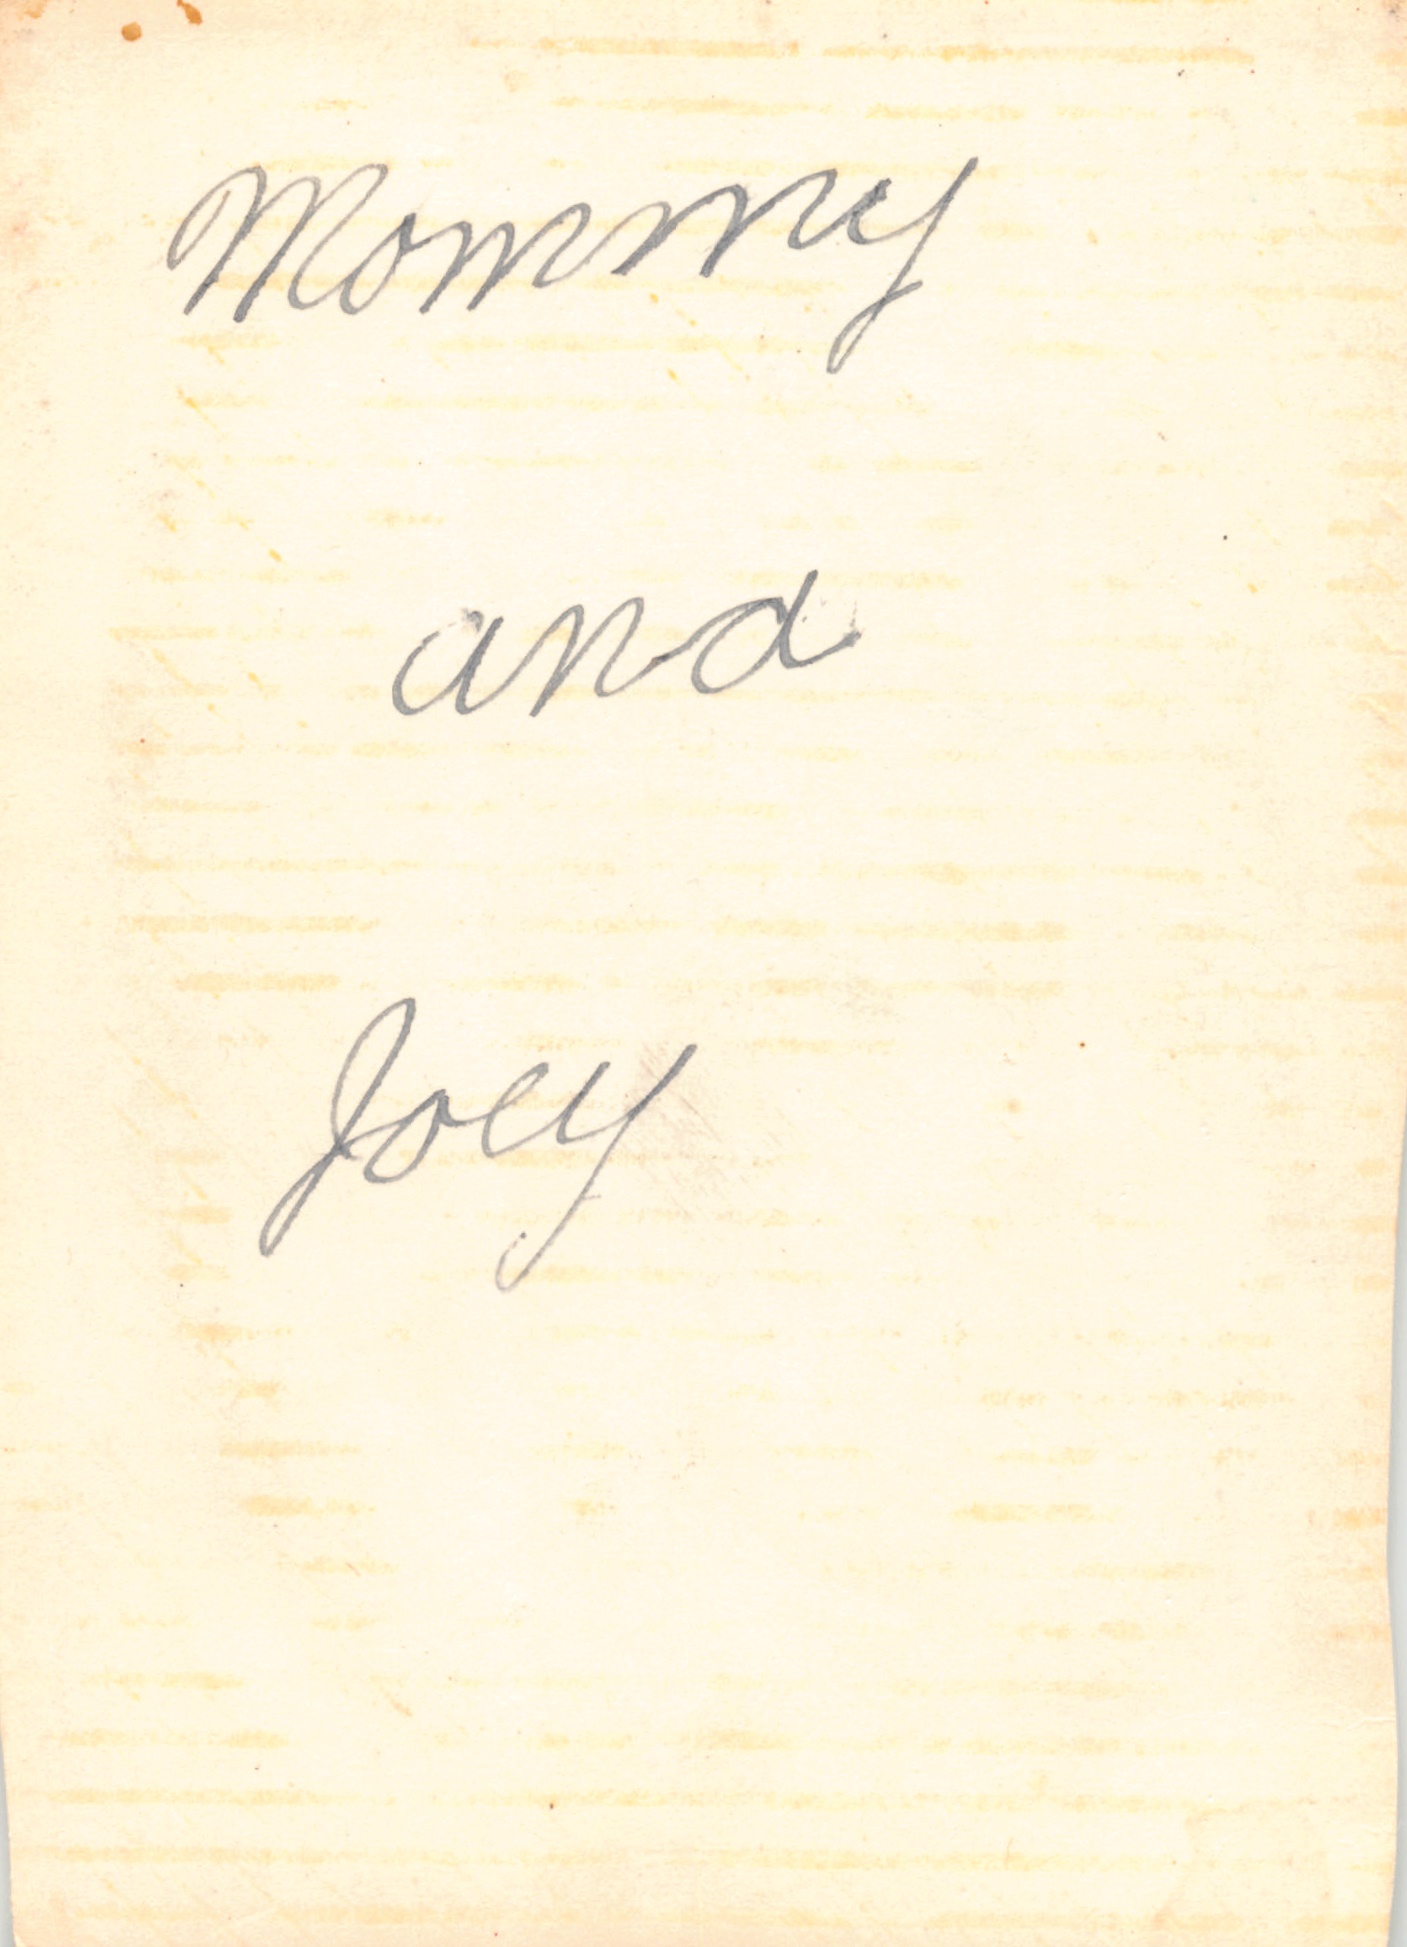 Mommy
and
Joey